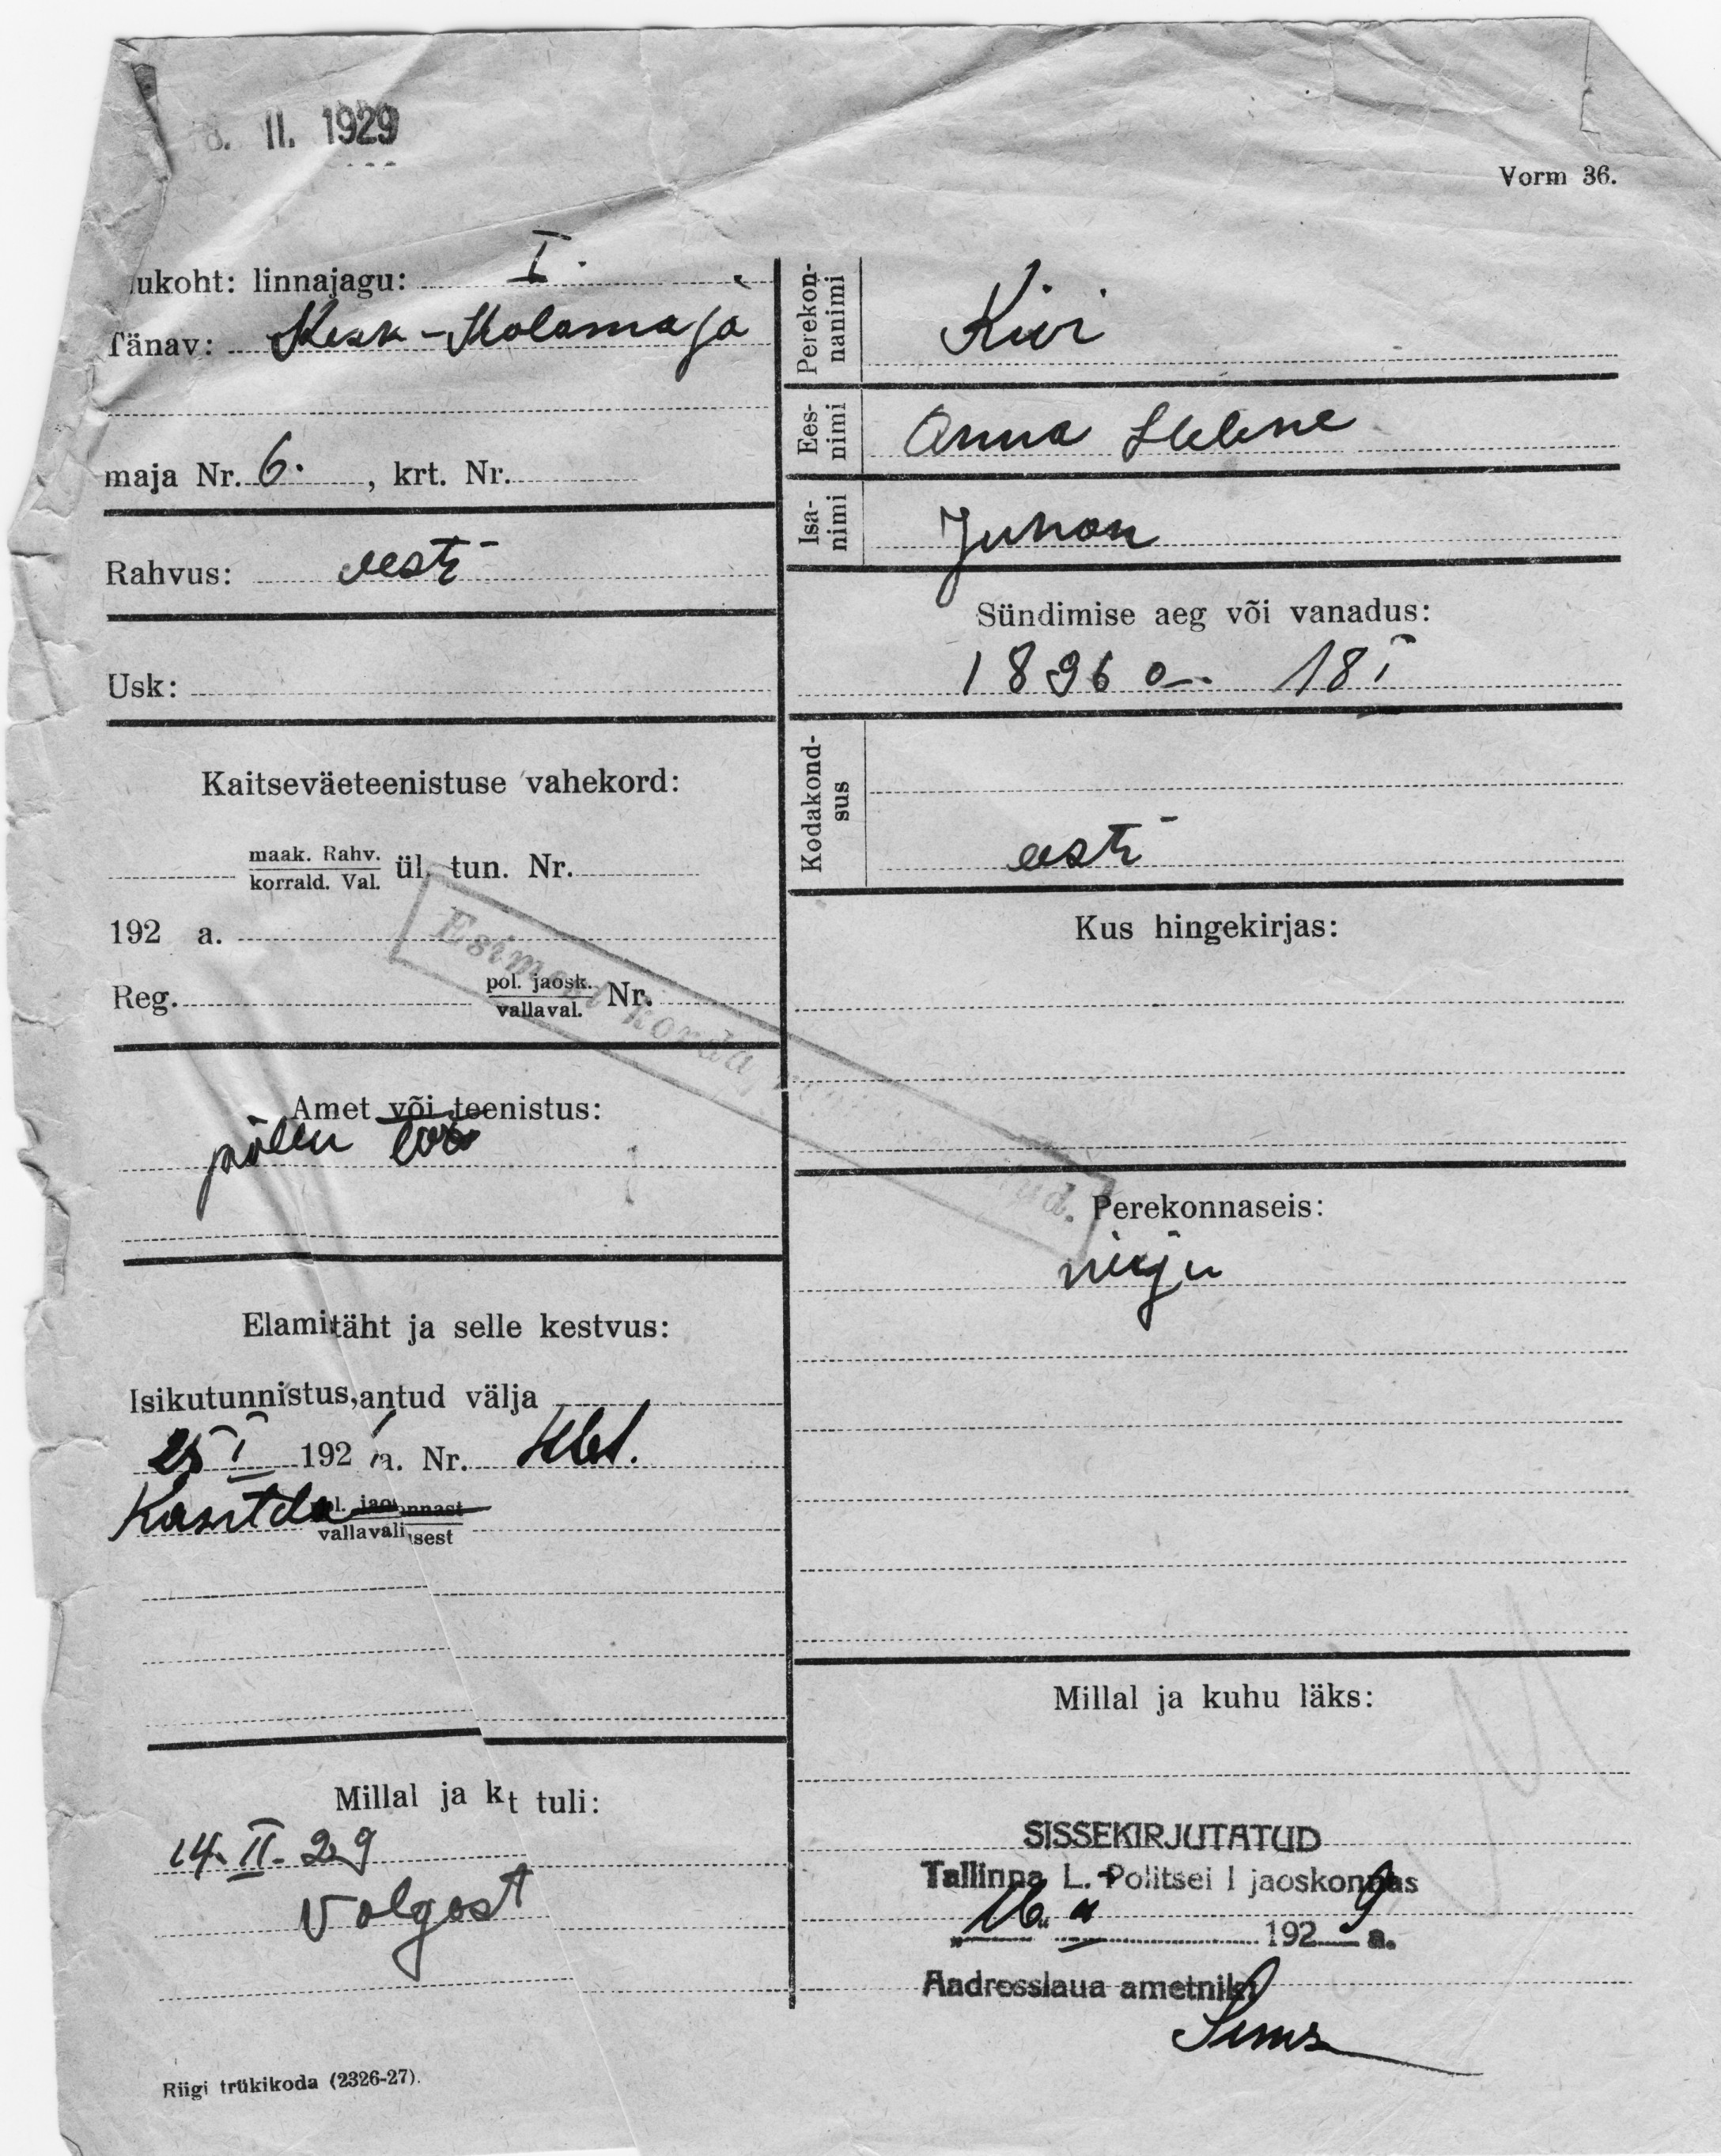 8. II. 1929
Vorm 36.
ukoht: linnajagu: I.
Tänav: Kesk-Kalamaja
maja Nr. 6. , krt. Nr.
Rahvus: eesti
Usk:
Kaitseväeteenistuse vahekord:
maak. Rahv.
korrald. Val.
ül. tun. Nr.
192 a.
Reg. pol. jaosk. Nr.
vallaval.
Amet või teenistus:
põllu töö
Elamitäht ja selle kestvus:
Isikutunnistus, antud välja
25 I 192 1 a. Nr.
vallavalisest
Millal ja kt tuli:
14. II. 29
Valgast
Riigi trükikoda (2326-27).
Perekonnanimi
Kivi
Eesnimi
Anna Helene
Isanimi
Juhan
Sündimise aeg või vanadus:
1896 a. 18 I
Kodakondsus
eesti
Kus hingekirjas:
Esimest korda
Perekonnaseis:
Millal ja kuhu läks:
SISSEKIRJUTATUD
Tallinna L. Politsei I jaoskonnas
"16" II 192 9 a.
Aadresslaua ametnik